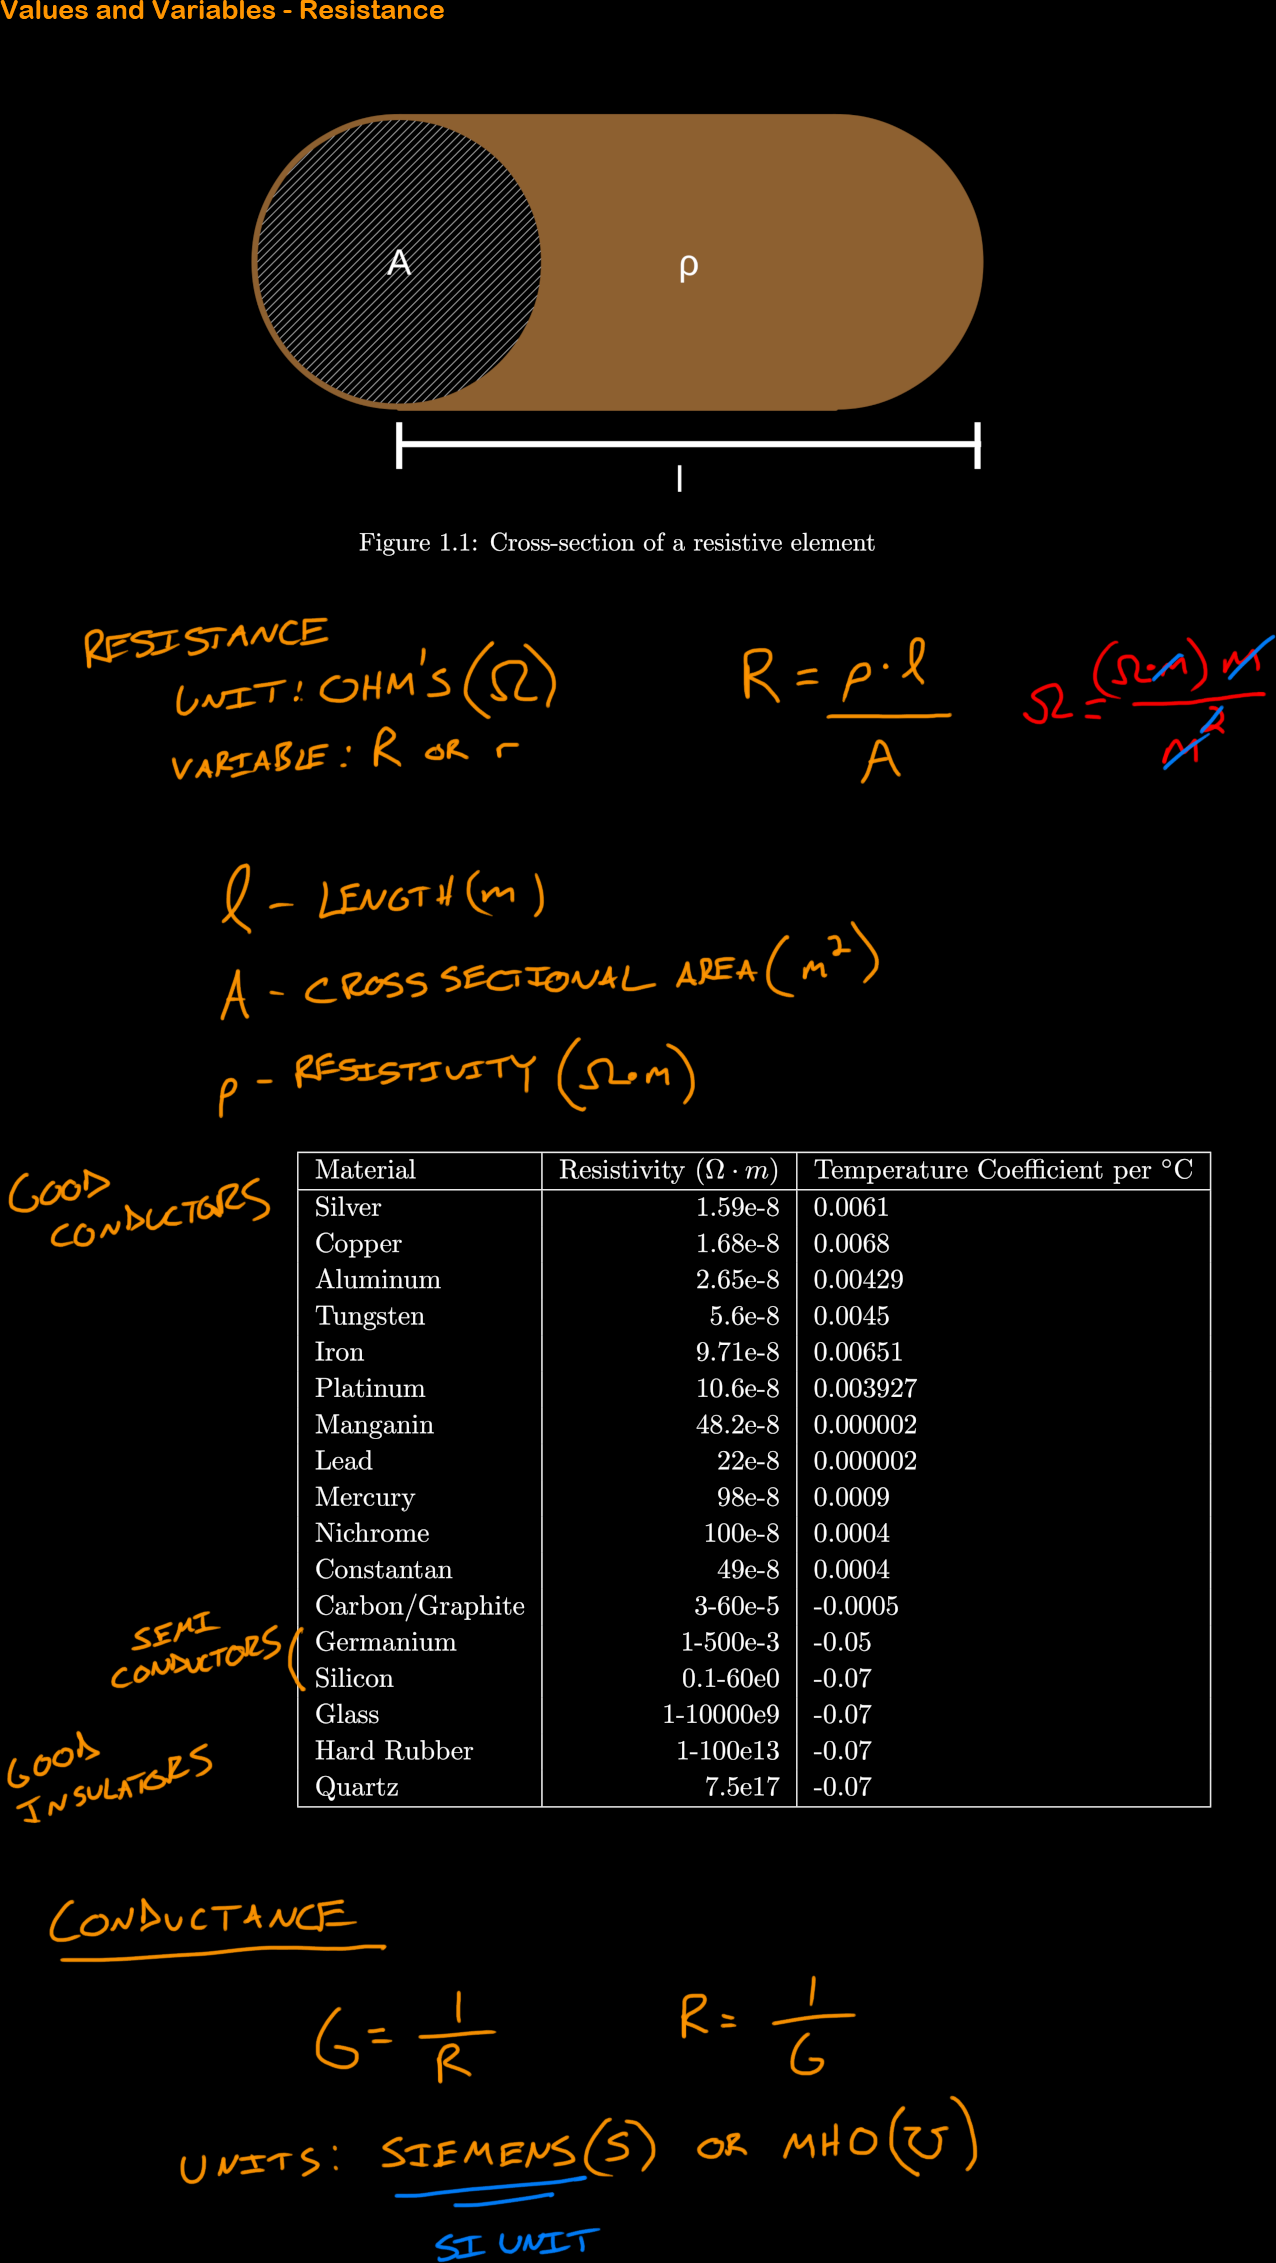 Values and Variables - Resistance
A
ρ
l
Figure 1.1: Cross-section of a resistive element
RESISTANCE
UNIT: OHM'S (Ω)
VARIABLE: R OR r
R = ρ·l / A
Ω = (Ω·m) m / m²
l - LENGTH (m)
A - CROSS SECTIONAL AREA (m²)
ρ - RESISTIVITY (Ω·m)
GOOD
CONDUCTORS
Material Resistivity (Ω · m) Temperature Coefficient per °C
Silver 1.59e-8 0.0061
Copper 1.68e-8 0.0068
Aluminum 2.65e-8 0.00429
Tungsten 5.6e-8 0.0045
Iron 9.71e-8 0.00651
Platinum 10.6e-8 0.003927
Manganin 48.2e-8 0.000002
Lead 22e-8 0.000002
Mercury 98e-8 0.0009
Nichrome 100e-8 0.0004
Constantan 49e-8 0.0004
Carbon/Graphite 3-60e-5 -0.0005
SEMI
CONDUCTORS
Germanium 1-500e-3 -0.05
Silicon 0.1-60e0 -0.07
Glass 1-10000e9 -0.07
Hard Rubber 1-100e13 -0.07
Quartz 7.5e17 -0.07
GOOD
INSULATORS
CONDUCTANCE
G = 1 / R
R = 1 / G
UNITS: SIEMENS (S) OR MHO (℧)
SI UNIT